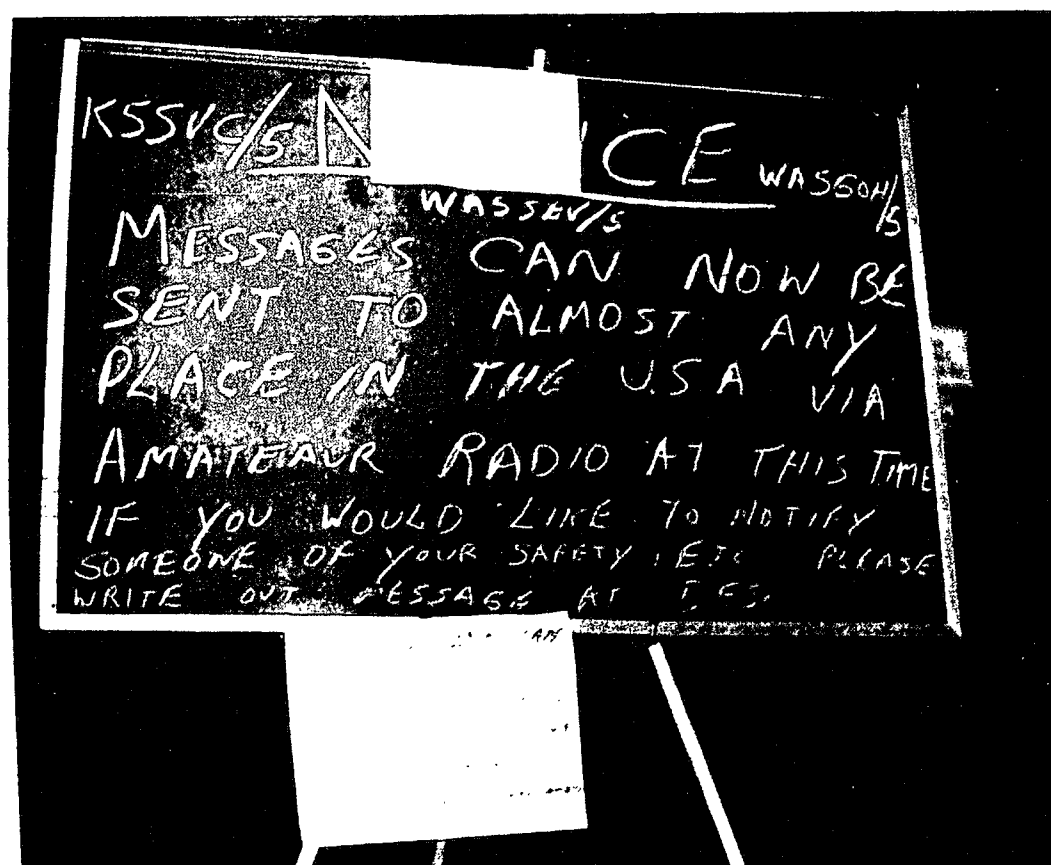 K5SVC/5 N ICE WA5GOH/5
WA5SEV/5
MESSAGES CAN NOW BE
SENT TO ALMOST ANY
PLACE IN THE U.S.A VIA
AMATEAUR RADIO AT THIS TIME
IF YOU WOULD LIKE TO NOTIFY
SOMEONE OF YOUR SAFETY, ETC PLEASE
WRITE OUT MESSAGE AT DESK